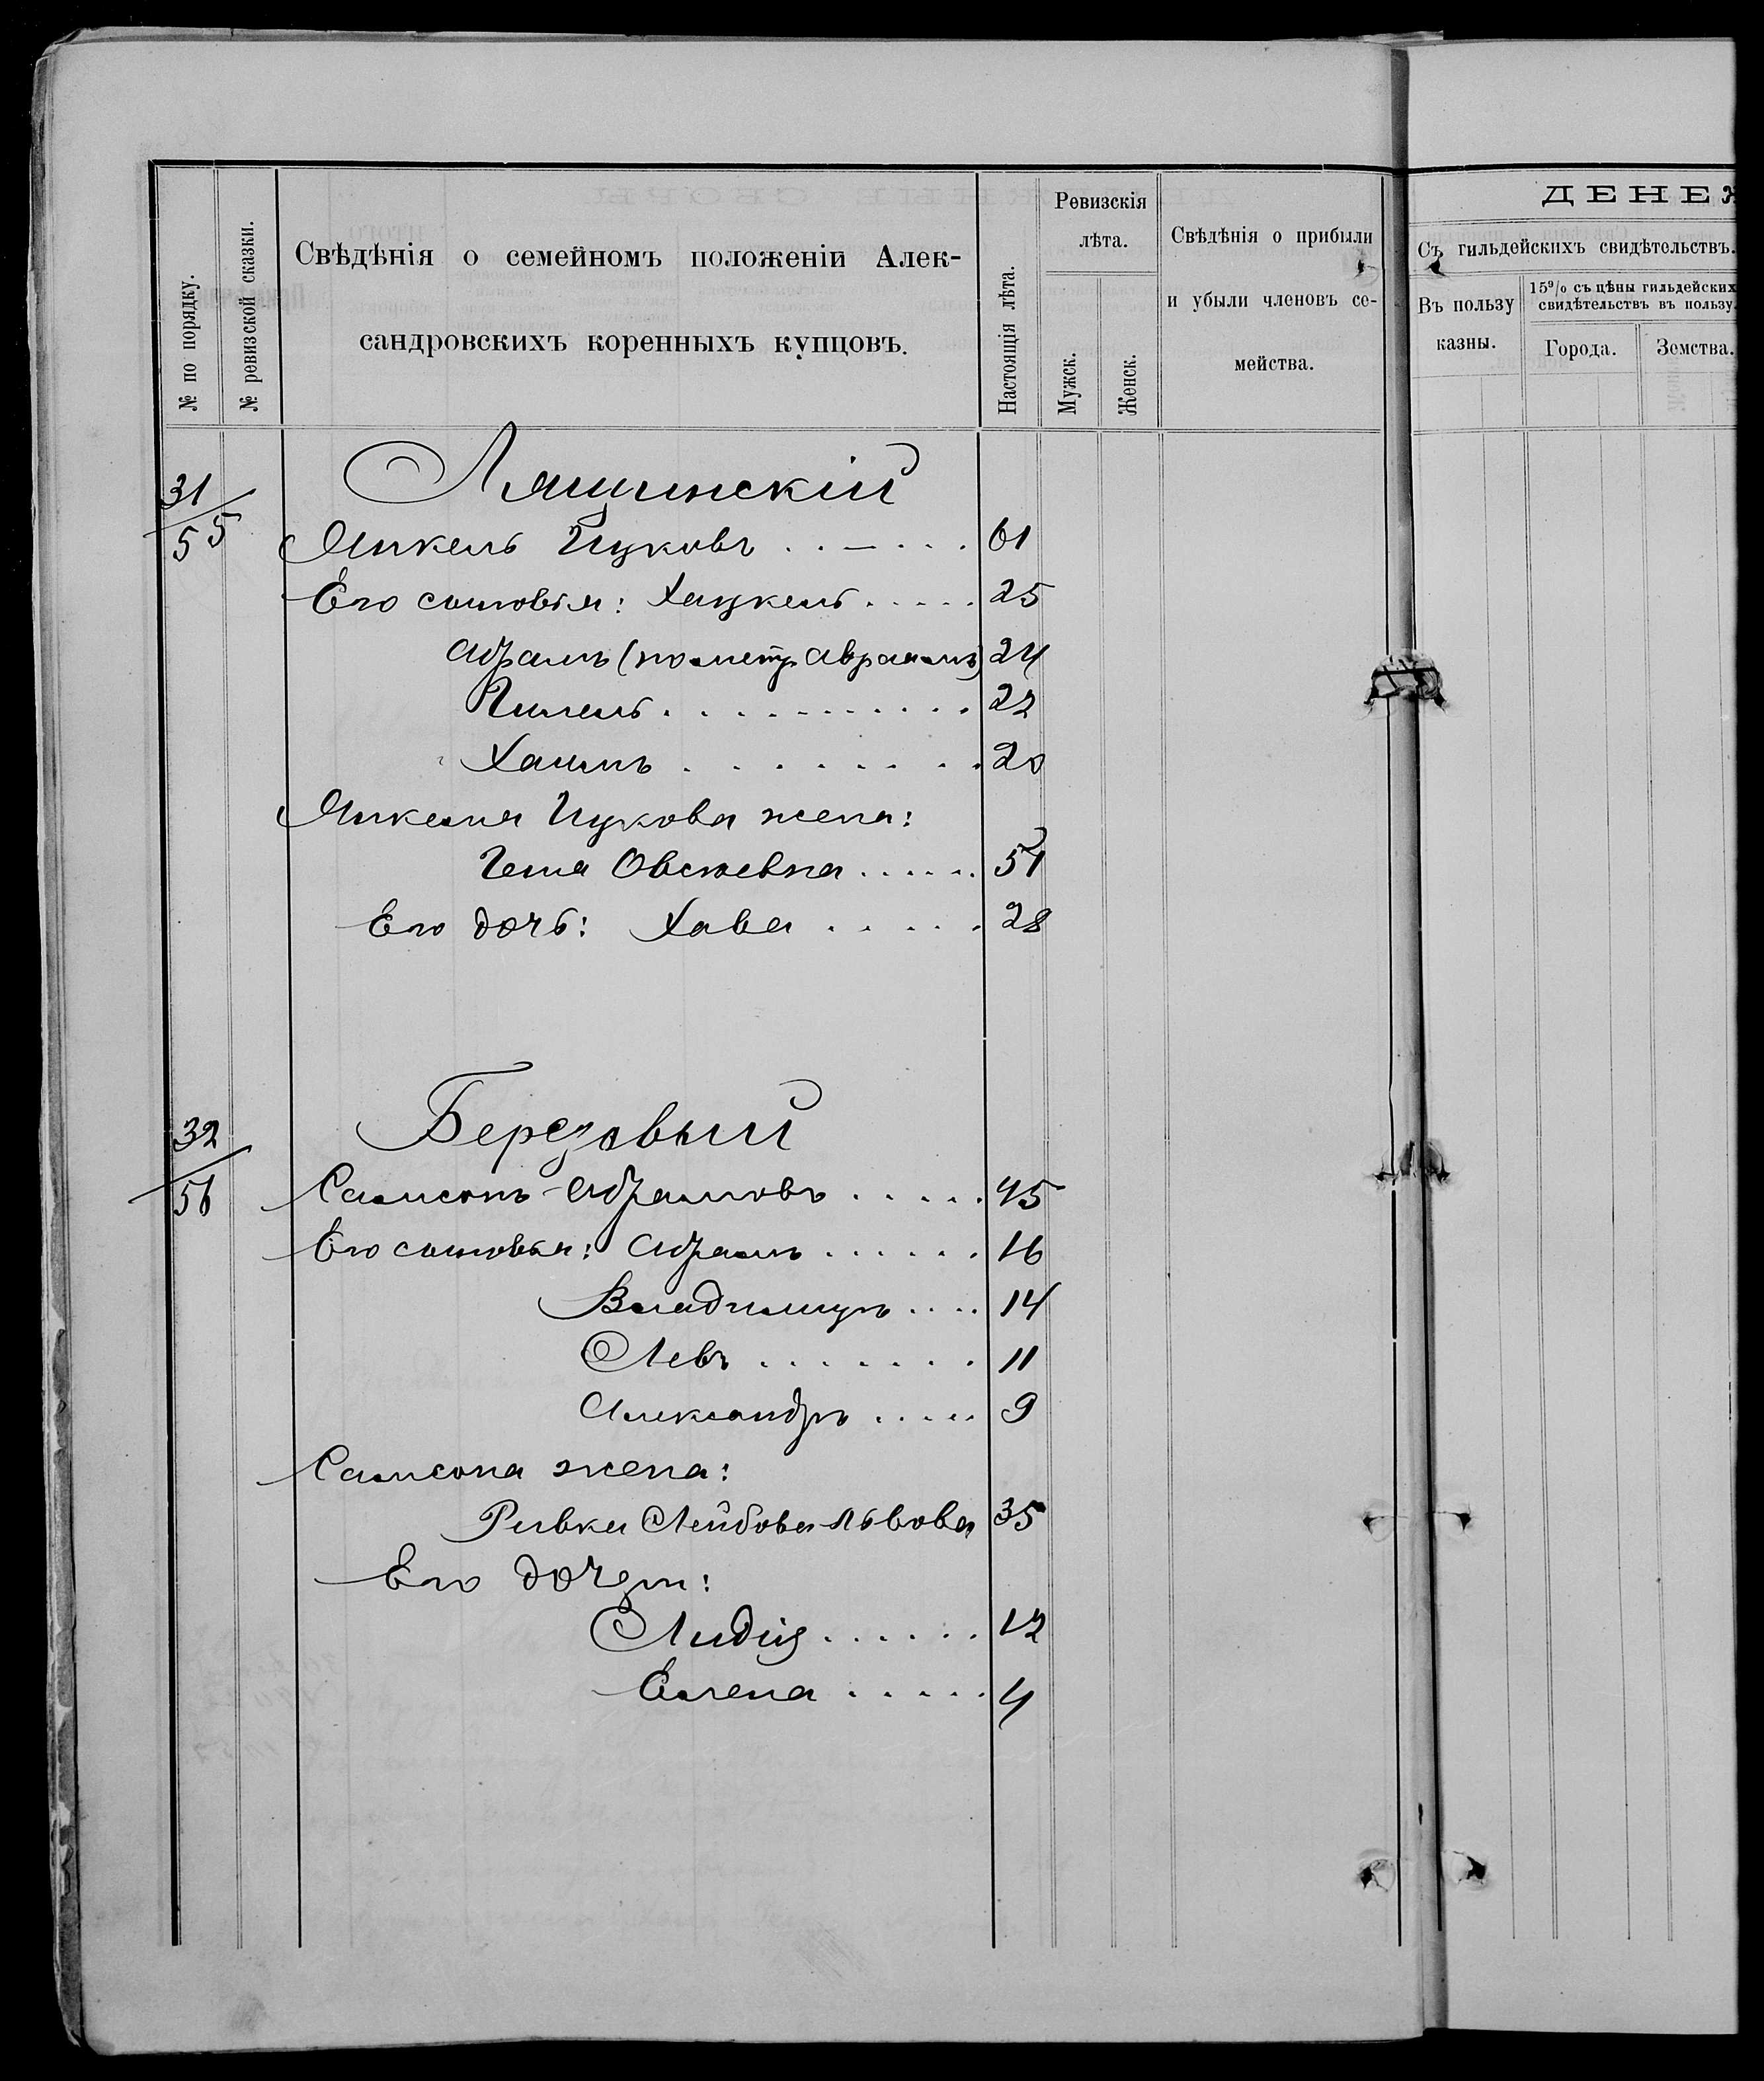 № по порядку.
№ ревизской сказки.
Свѣдѣнія о семейномъ положеніи Алек-
сандровскихъ коренныхъ купцовъ.
Настоящія лѣта.
Ревизскія
лѣта.
Мужск.
Женск.
Свѣдѣнія о прибыли
и убыли членовъ се-
мейства.
ДЕНЕЖ
Съ гильдейскихъ свидѣтельствъ.
Въ пользу
казны.
15% съ цѣны гильдейских
свидѣтельствъ въ пользу.
Города.
Земства.
31
55
Лящинскій
Янкель Ицковъ 61
Его сыновья: Хацкель 25
Абрамъ (по метр Авраамъ) 24
Гилель 22
Хаимъ 20
Янкеля Ицкова жена:
Геня Овсѣевна 51
Его дочь: Хава 28
32
56
Березовый
Самсонъ Абрамовъ 45
Его сыновья: Абрамъ 16
Владимиръ 14
Левъ 11
Александръ 9
Самсона жена:
Ривка Лейбова Львова 35
Его дочери:
Лидія 12
Елена 4